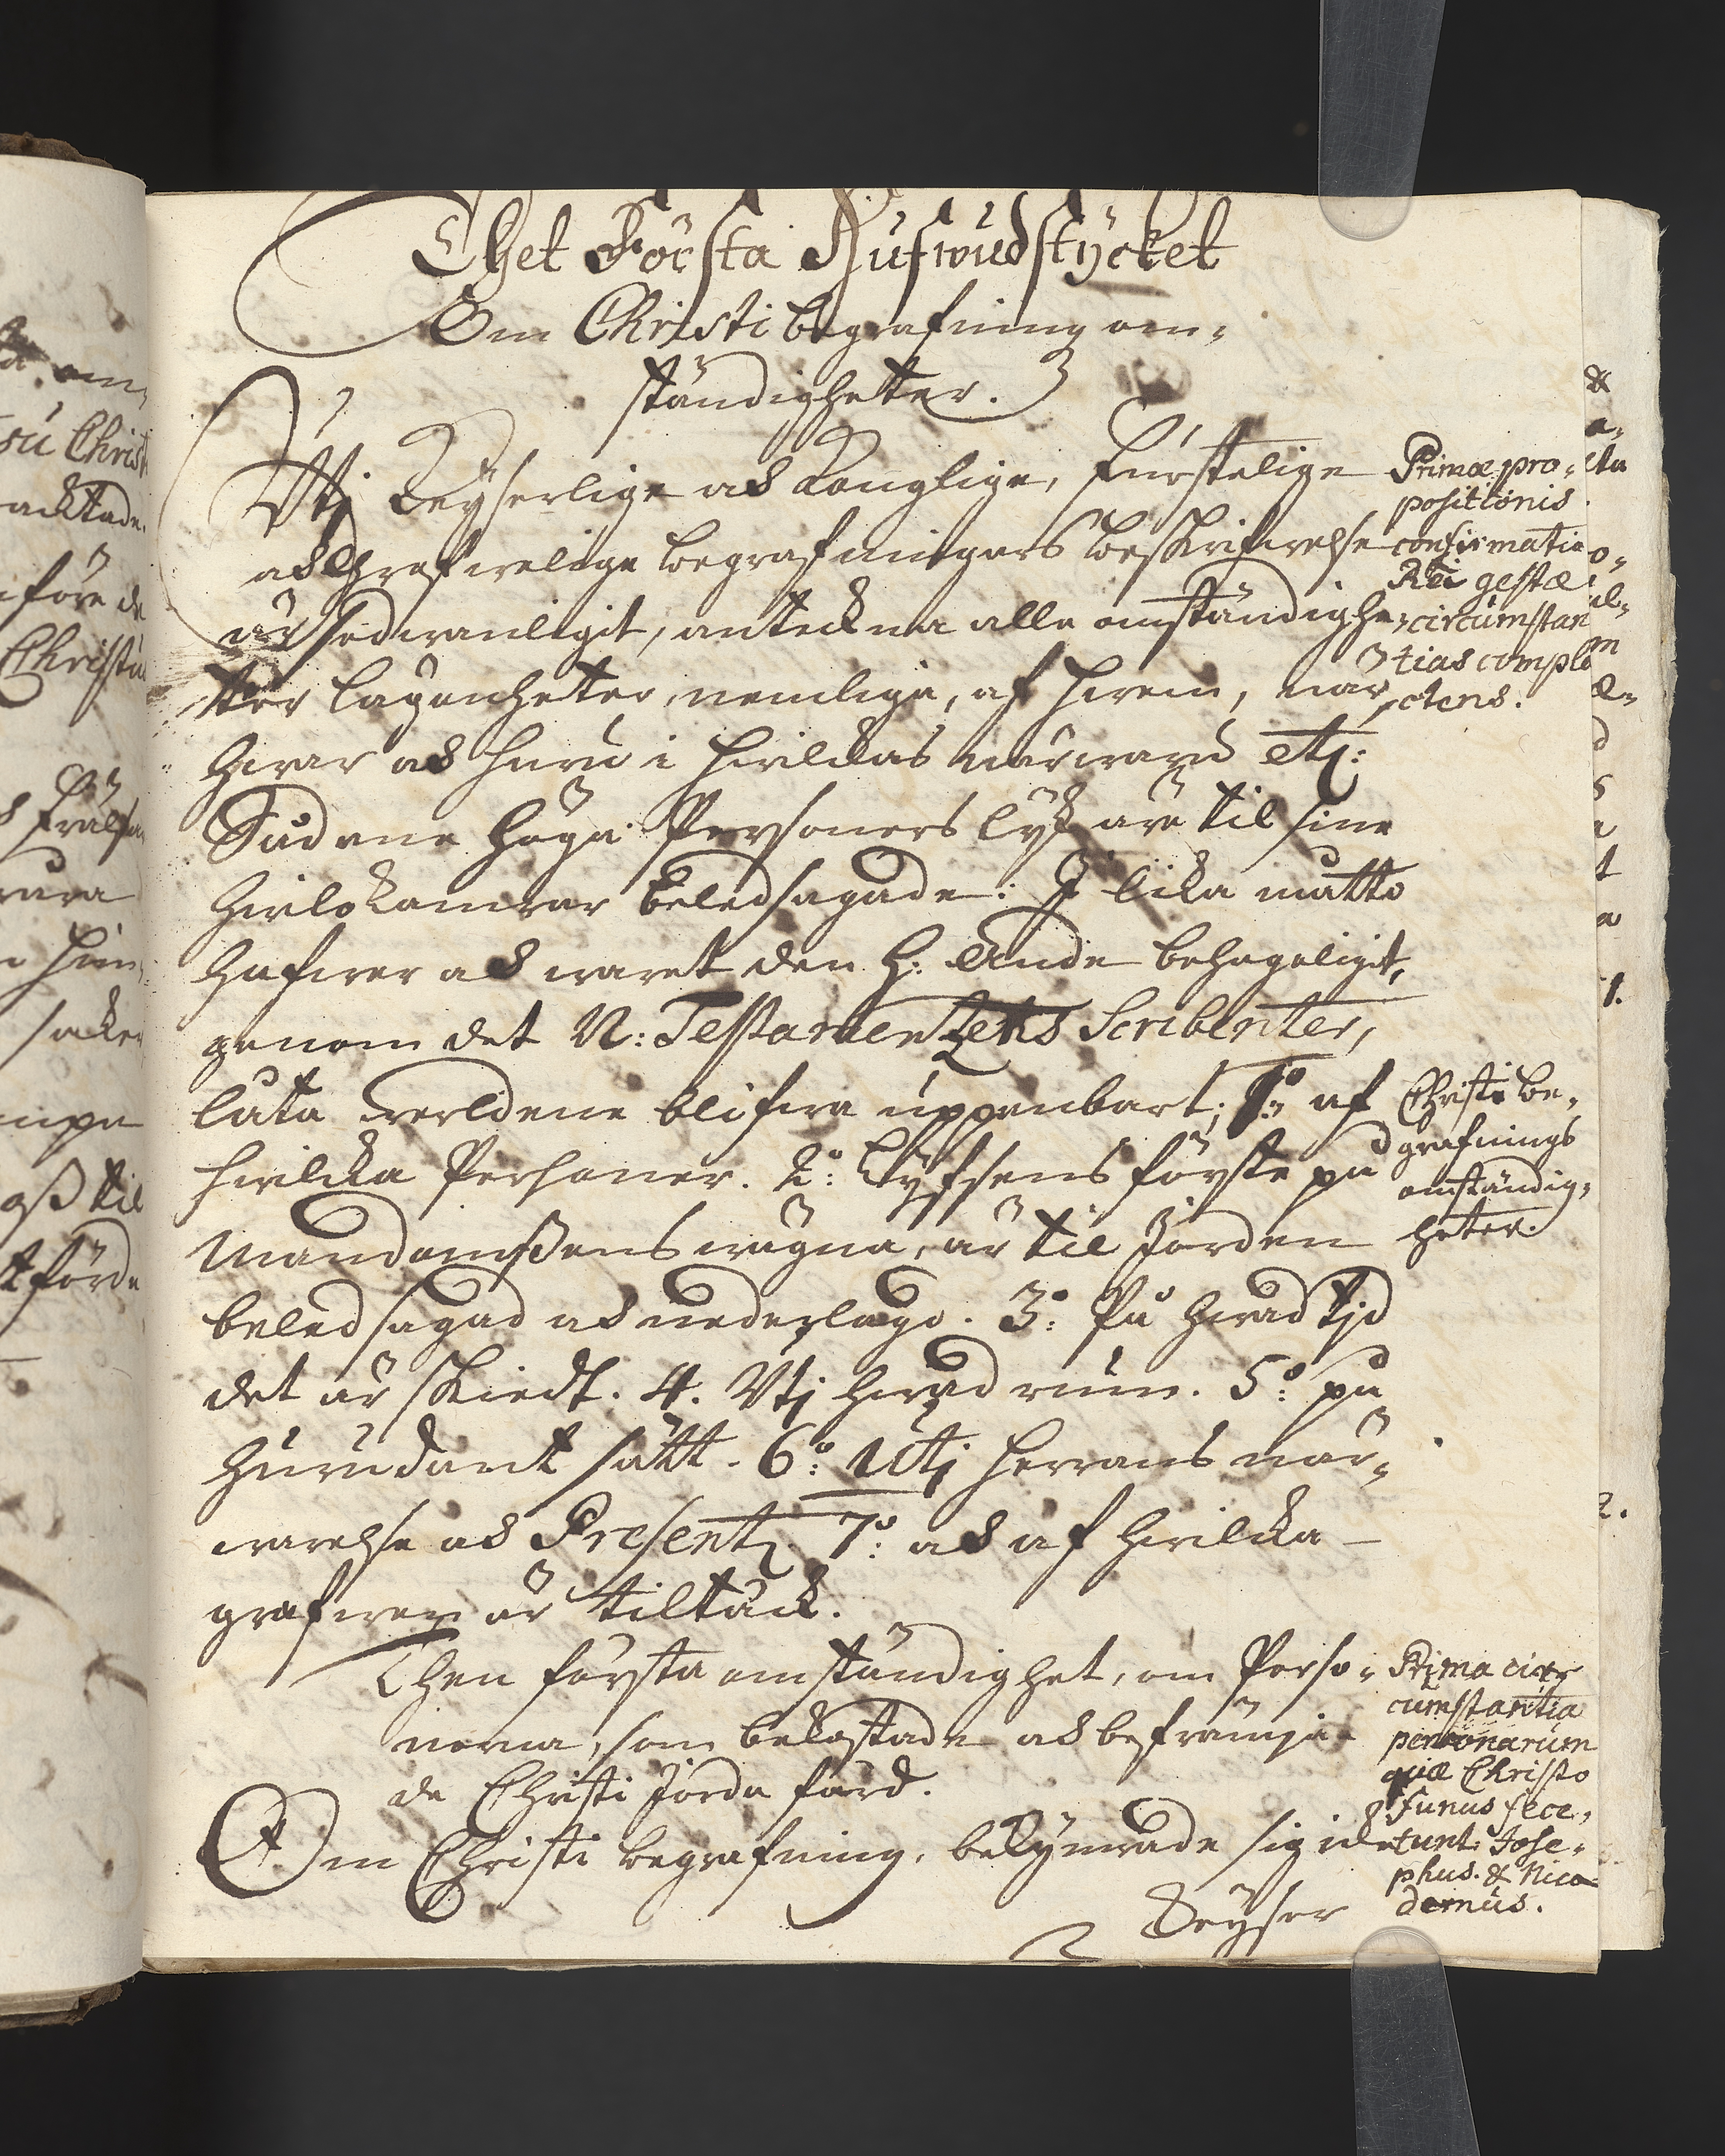 Thet Första Hufwudstycket
Om Christi begrafning om,
ständigheter.
Utj Keyserlige och Konglige, Furstelige
och Grefwelige begrafningars beskrifwelse
är sedwanligit, anteckna alla omständighe,
ter lägenheter, nemliga, af hwem, när,
hwar och huru i hwilckas närwaru etc:
Sudane höga Personers lyk äre til sine
hwilokamrar beledsagade: I lika matto
hafwer och warit den H: Ande behageligit,
genom det N: Testamentzens Scribenter,
låta werldene blifwa uppenbart; 1:o af
hwilcka Personer. 2:o Lyfsens förste på
Mandomssens wägna, är til Jorden
beledsagad och nederlagd. 3:o På hwad tjd
det är skiedt. 4. Utj hwad rum. 5:o på
hurudant sätt. 6:o Utj hwars när,
warelse och Presentz 7:o och af hwilcka
grafwen är tiltäckt.
Then första omständighet, om Perso,
nerna, som bekostade och befrämja,
de Christi Jorda färd.
Om Christi begrafning, bekymrade sig icke
Keyser
Primæ pro,
positionis
confirmatio
Rei gestæ
circumstan
tias comple
ctens.
Christi be,
grafnings
omständig,
heter.
Prima cir,
cumstantia
personarum
quæ Christo
funus fece,
runt. Jose,
phus. & Nico
demus.